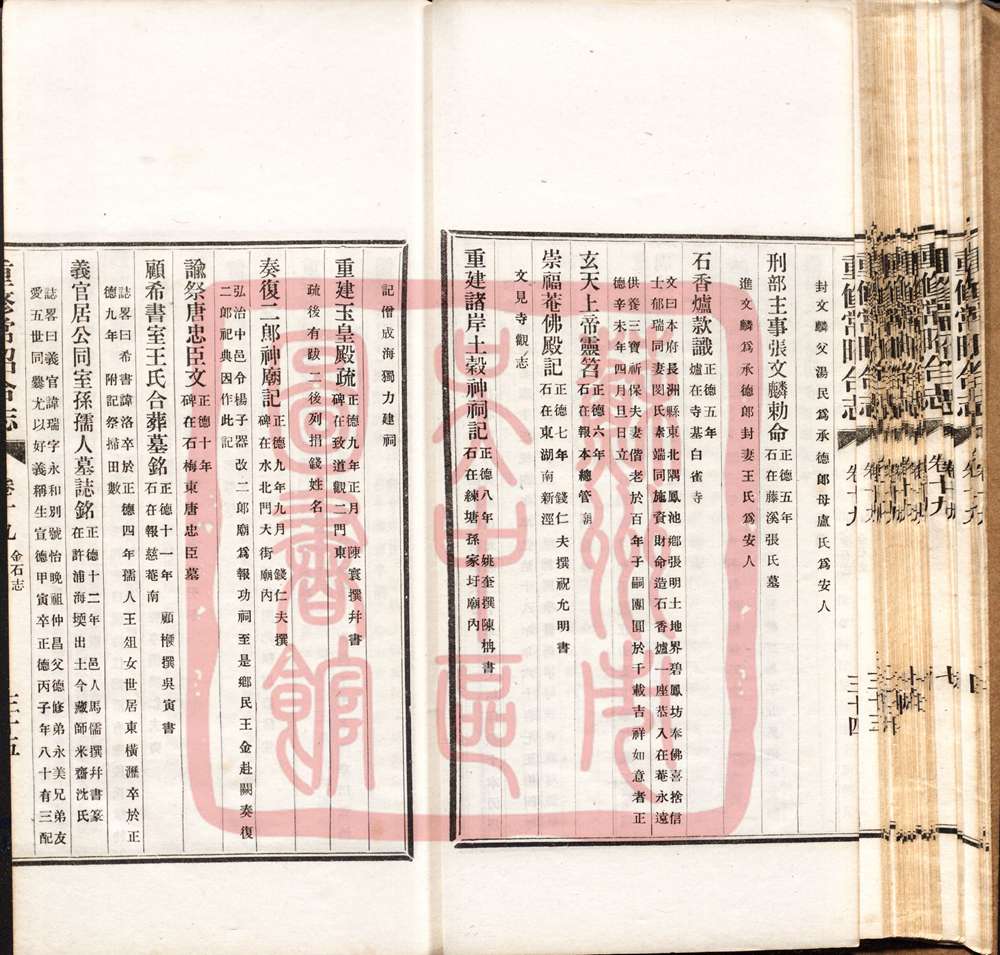 封文麟父湯民為承德郎母盧氏為安人
刑部主事張文麟勅命正德五年
石在藤溪張氏墓
進文麟為承德郎封妻王氏為安人
石香爐款識正德五年
爐在寺基白雀寺
文曰本府長洲縣東北隅鳳池鄉張明土地界碧鳳坊奉佛喜捨信
士郁瑞同妻閔氏素端同施資財命造石香爐一座恭入在菴永遠
供養三寶祈保夫妻偕老於百年子嗣團圓於千載吉祥如意者正
德辛未年四月旦日立
玄天上帝靈筶正德六年
石在報本總管廟
崇福菴佛殿記正德七年 錢仁夫撰祝允明書
石在東湖南新涇
文見寺觀志
重建諸岸土穀神祠記正德八年 姚奎撰陳桷書
石在練塘孫家圩廟內
記僧成海獨力建祠
重建玉皇殿疏正德九年正月 陳寰撰幷書
碑在致道觀二門東
疏後有跋二後列捐錢姓名
奏復二郎神廟記正德九年九月 錢仁夫撰
碑在水北門大街廟內
弘治中邑令楊子器改二郎廟為報功祠至是鄉民王金赴闕奏復
二郎祀典因作此記
諭祭唐忠臣文正德十年
碑在石梅東唐忠臣墓
顧希書室王氏合葬墓銘正德十一年 顧㮣撰吳寅書
石在報慈菴南
誌畧曰希書諱洛卒於正德四年孺人王俎女世居東橫瀝卒於正
德九年 附記祭掃田數
義官居公同室孫孺人墓誌銘正德十二年 邑人馬儒撰幷書篆
在許浦海堧出土今藏師米齋沈氏
誌畧曰義官諱瑞字永和別號怡晚祖仲昌父德修弟永美兄弟友
愛五世同爨尤以好義稱生宣德甲寅卒正德丙子年八十有三配
重修常昭合志 卷十九 金石志 三十五
重修常昭合志 卷十九 三十四